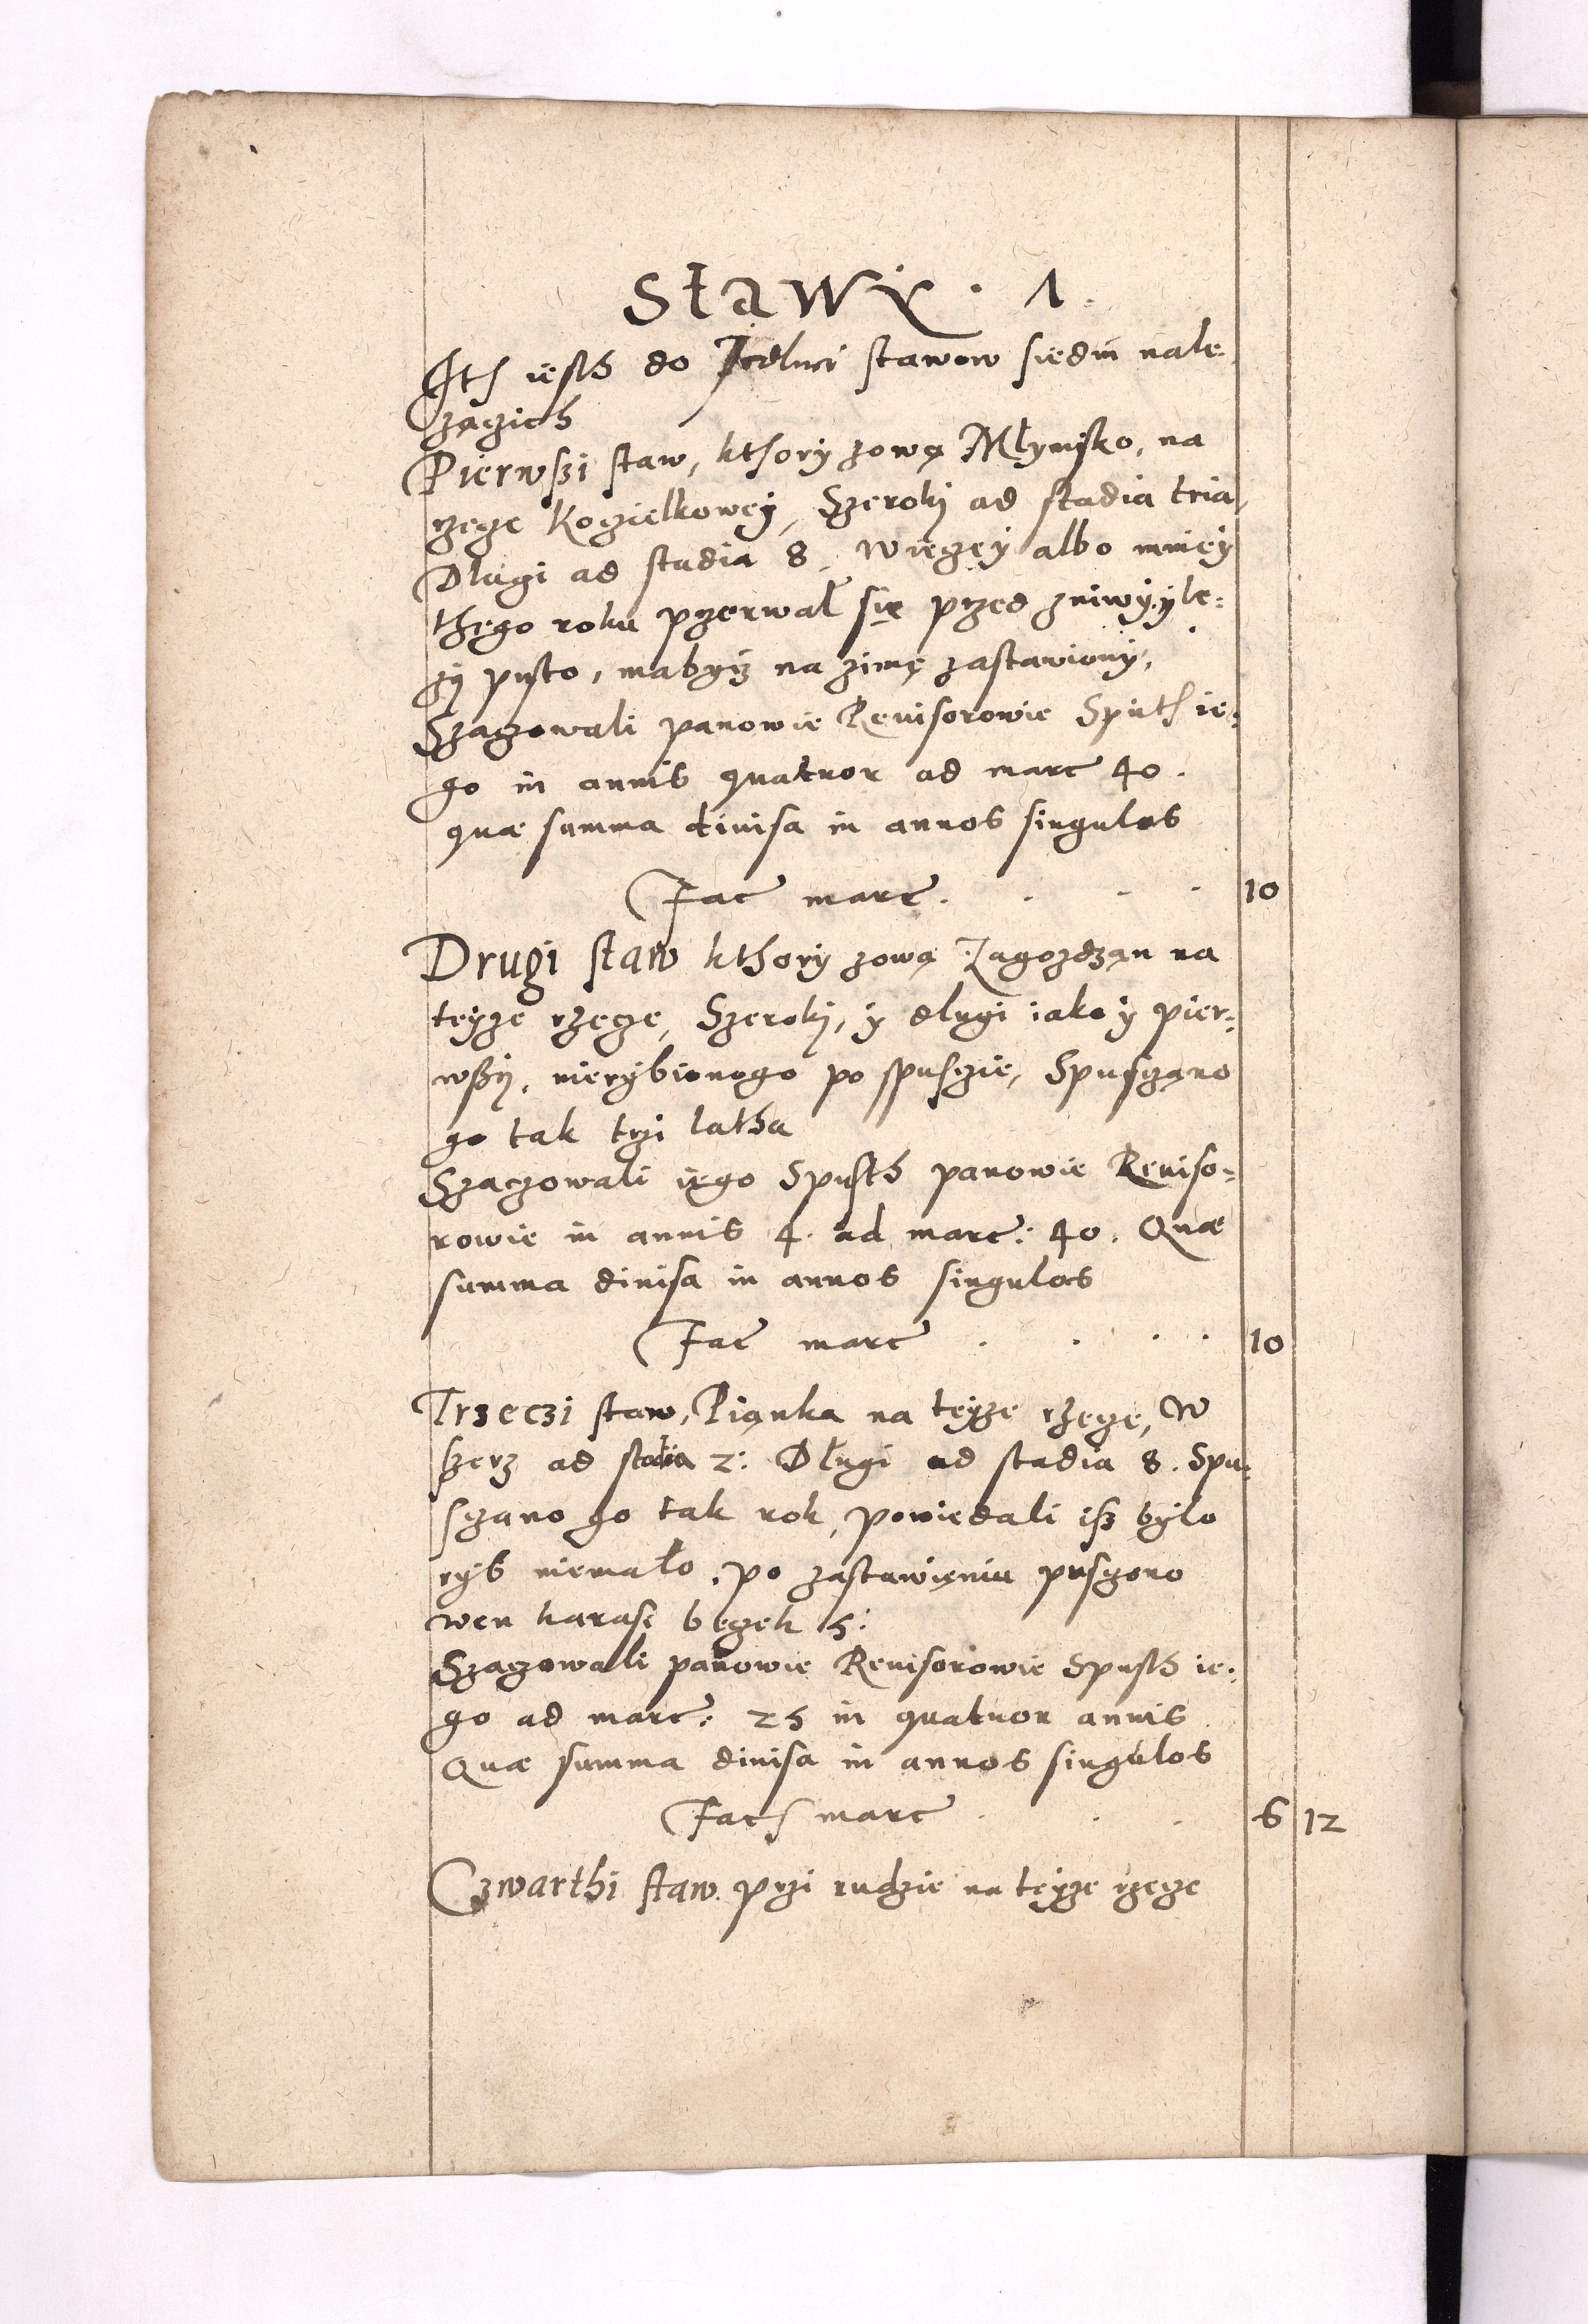 Stawy . 1.
Ith iesth do Jedlnei stawow siedm nale¬
zączich
Pierwszi staw, kthory zową Młynisko, na
rzecze Kozielkowey, Szeroki ad stadia tria,
Dlugi ad stadia 8, Wieczey albo mniey
thego roku przerwał się przed zniwy, y le=
zy pusto, ma bycz na zimę zastawiony,
Szaczowali panowie Revisorowie Sputh ie=
go in annis quatuor ad marc 40.
quae summa divisa in annos singulos
Fac marc. 10
Drugi staw kthory zową Zagozdzan na
teyze rzecze, Szeroki, y dlugi iako y pier=
wszy, nierybionogo po spusczie, Spusczano
go tak trzi latha
Szaczowali iego Spusth panowie Reviso=
rowie in annis 4. ad marc: 40. Quae
summa divisa in annos singulos
Fac marc 10
Trzeczi staw, Pianka na teyze rzecze, W
szerz ad stadia 2: Długi ad stadia 8. Spu=
sczano go tak rok, powiedali isz bylo
ryb niemało, po zastawieniu pusczono
wen karasi beczek 5:
Szaczowali panowie Revisorowie Spusth ie=
go ad marc: 25 in quatuor annis
Quae summa divisa in annos singulos
Fac marc 6 12
Czwarthi staw przi rudzie na teyze rzecze